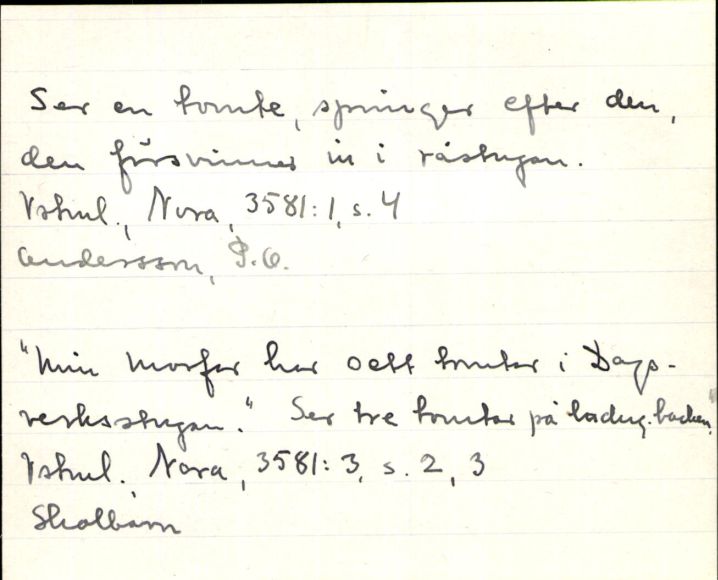 Ser en tomte, springer efter den,
den försvinner in i råstugan.
Vstml., Nora, 3581:1, s. 4
Andersson, P.O.
"Min morfar har sett tomtar i Dags-
verksstugan." Ser tre tomtar på ladug.backen.
Vstml., Nora, 3581:3, s. 2, 3
Skolbarn